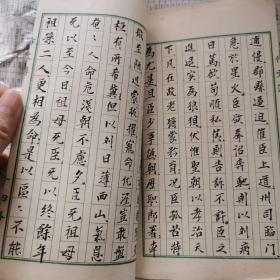 逋慢郡縣逼迫催臣上道州司臨門
急於星火臣欲奉詔奔馳則劉病
日篤欲苟順私情則告訴不許臣之
進退實為狼狽伏惟聖朝以孝治天
下凡在故老猶蒙矜育況臣孤苦特
為尤甚且臣少事偽朝歷職郎署本
至陋過蒙拔擢寵命優渥豈敢盤
桓有所希冀但以劉日薄西山氣息
奄〻人命危淺朝不慮夕臣无祖母
无以至今日祖母无臣无以終餘年
祖孫二人更相為命是以區〻不能